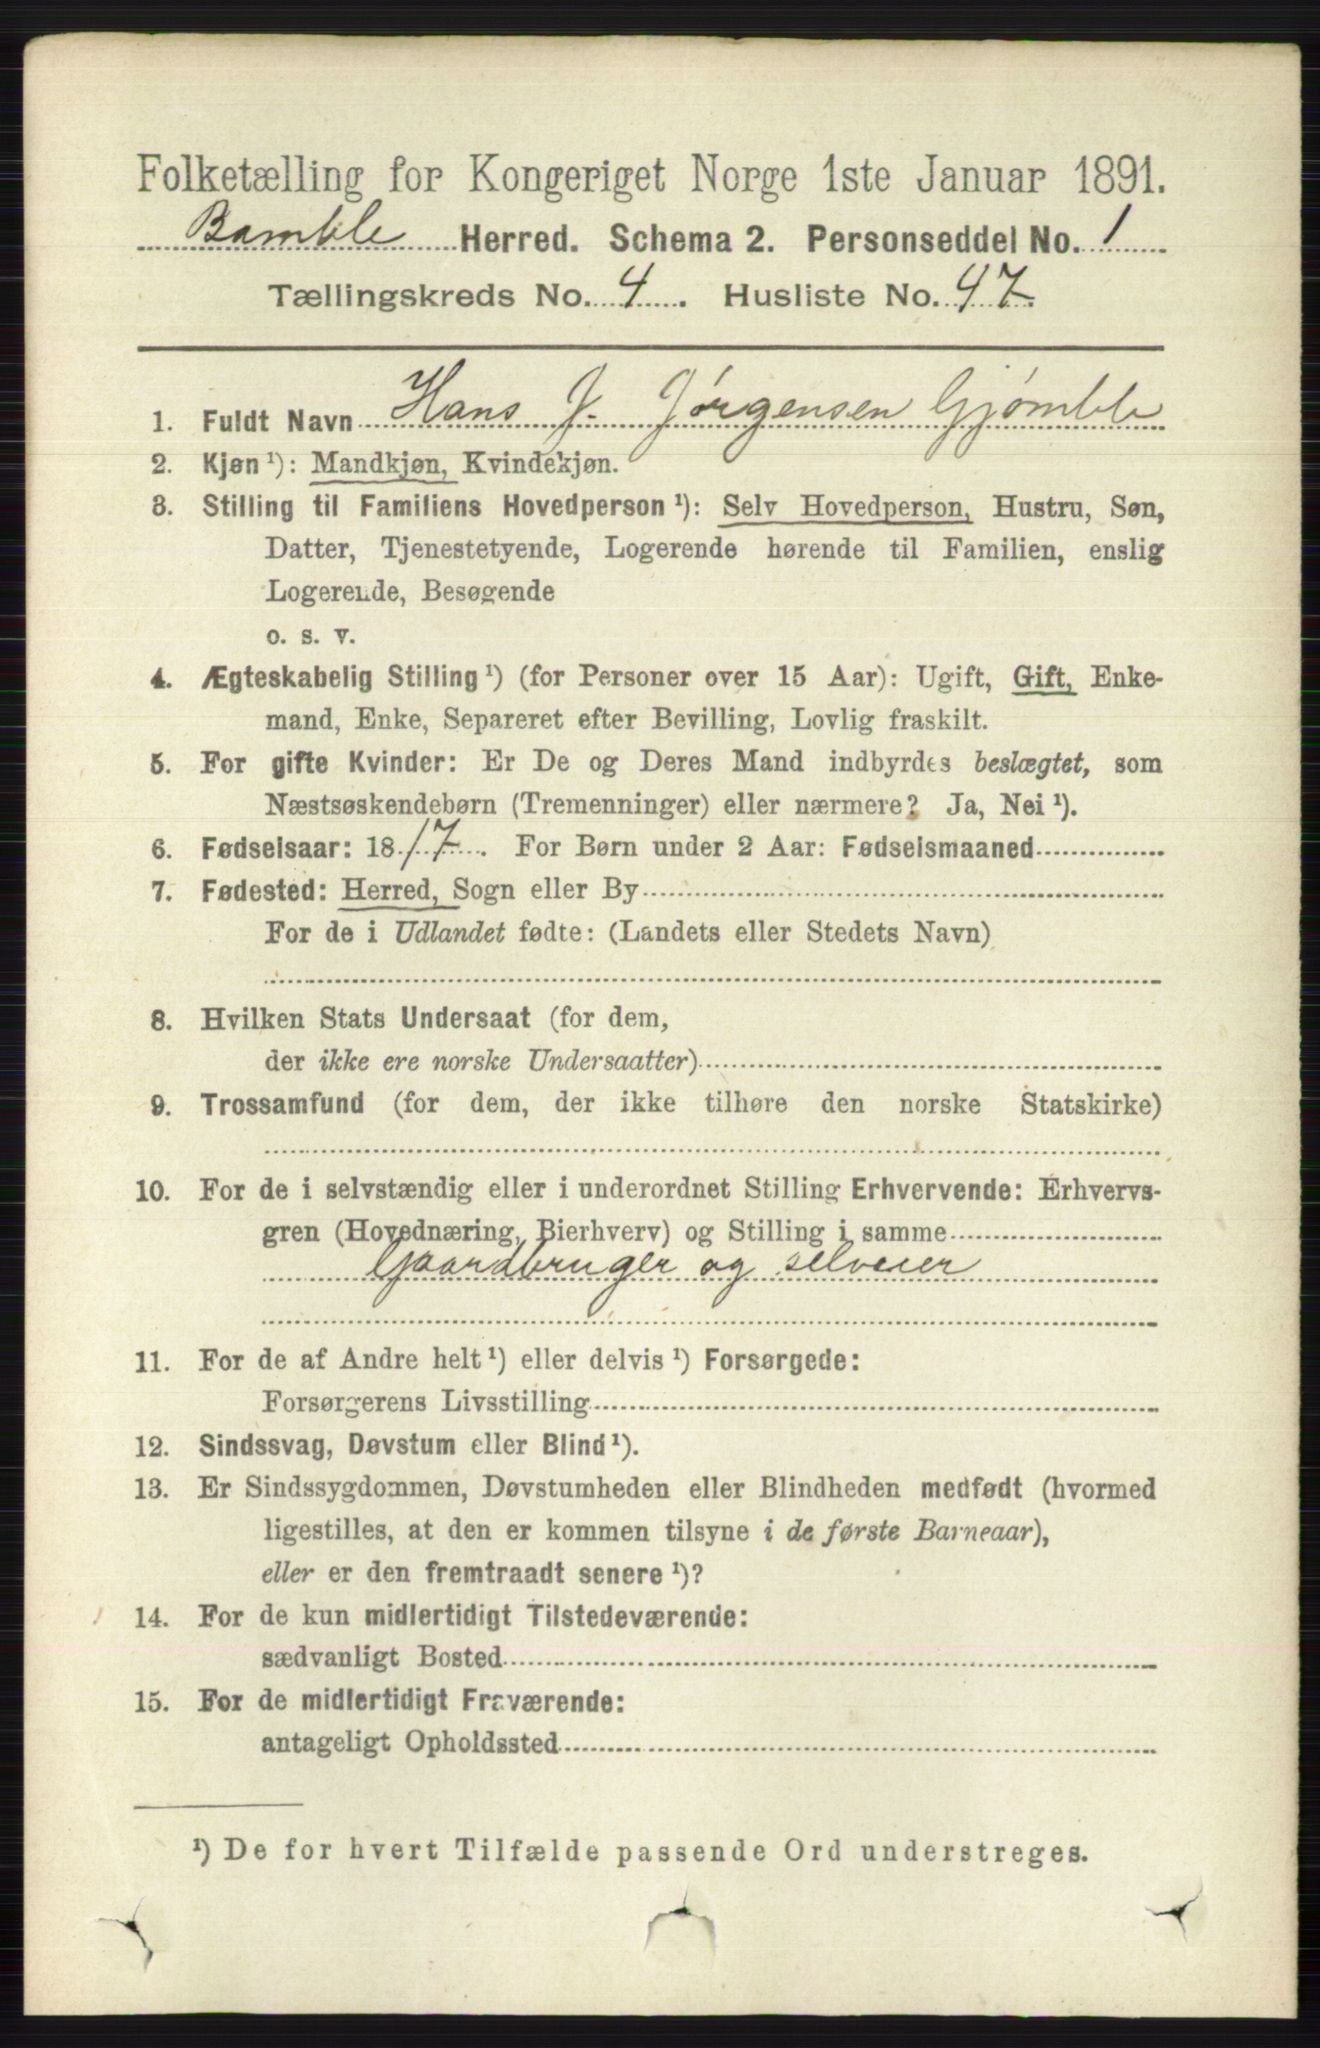 Folketælling for Kongeriget Norge 1ste Januar 1891.
Bamble Herred. Schema 2. Personseddel No. 1
Tællingskreds No. 4. Husliste No. 47.
1. Fuldt Navn Hans J. Jørgensen Gjømble
2. Kjøn ¹): Mandkjøn, Kvindekjøn.
3. Stilling til Familiens Hovedperson ¹): Selv Hovedperson, Hustru, Søn,
Datter, Tjenestetyende, Logerende hørende til Familien, enslig
Logerende, Besøgende
o. s. v.
4. Ægteskabelig Stilling ¹) (for Personer over 15 Aar): Ugift, Gift, Enke-
mand, Enke, Separeret efter Bevilling, Lovlig fraskilt.
5. For gifte Kvinder: Er De og Deres Mand indbyrdes beslægtet, som
Næstsøskendebørn (Tremenninger) eller nærmere? Ja, Nei ¹).
6. Fødselsaar: 1817. For Børn under 2 Aar: Fødselsmaaned
7. Fødested: Herred, Sogn eller By
For de i Udlandet fødte: (Landets eller Stedets Navn)
8. Hvilken Stats Undersaat (for dem,
der ikke ere norske Undersaatter)
9. Trossamfund (for dem, der ikke tilhøre den norske Statskirke)
10. For de i selvstændig eller i underordnet Stilling Erhvervende: Erhvervs-
gren (Hovednæring, Bierhverv) og Stilling i samme
Gaardbruger og selveier
11. For de af Andre helt ¹) eller delvis ¹) Forsørgede:
Forsørgerens Livsstilling
12. Sindssvag, Døvstum eller Blind ¹).
13. Er Sindssygdommen, Døvstumheden eller Blindheden medfødt (hvormed
ligestilles, at den er kommen tilsyne i de første Barneaar),
eller er den fremtraadt senere ¹)?
14. For de kun midlertidigt Tilstedeværende:
sædvanligt Bosted
15. For de midlertidigt Fraværende:
antageligt Opholdssted
¹) De for hvert Tilfælde passende Ord understreges.